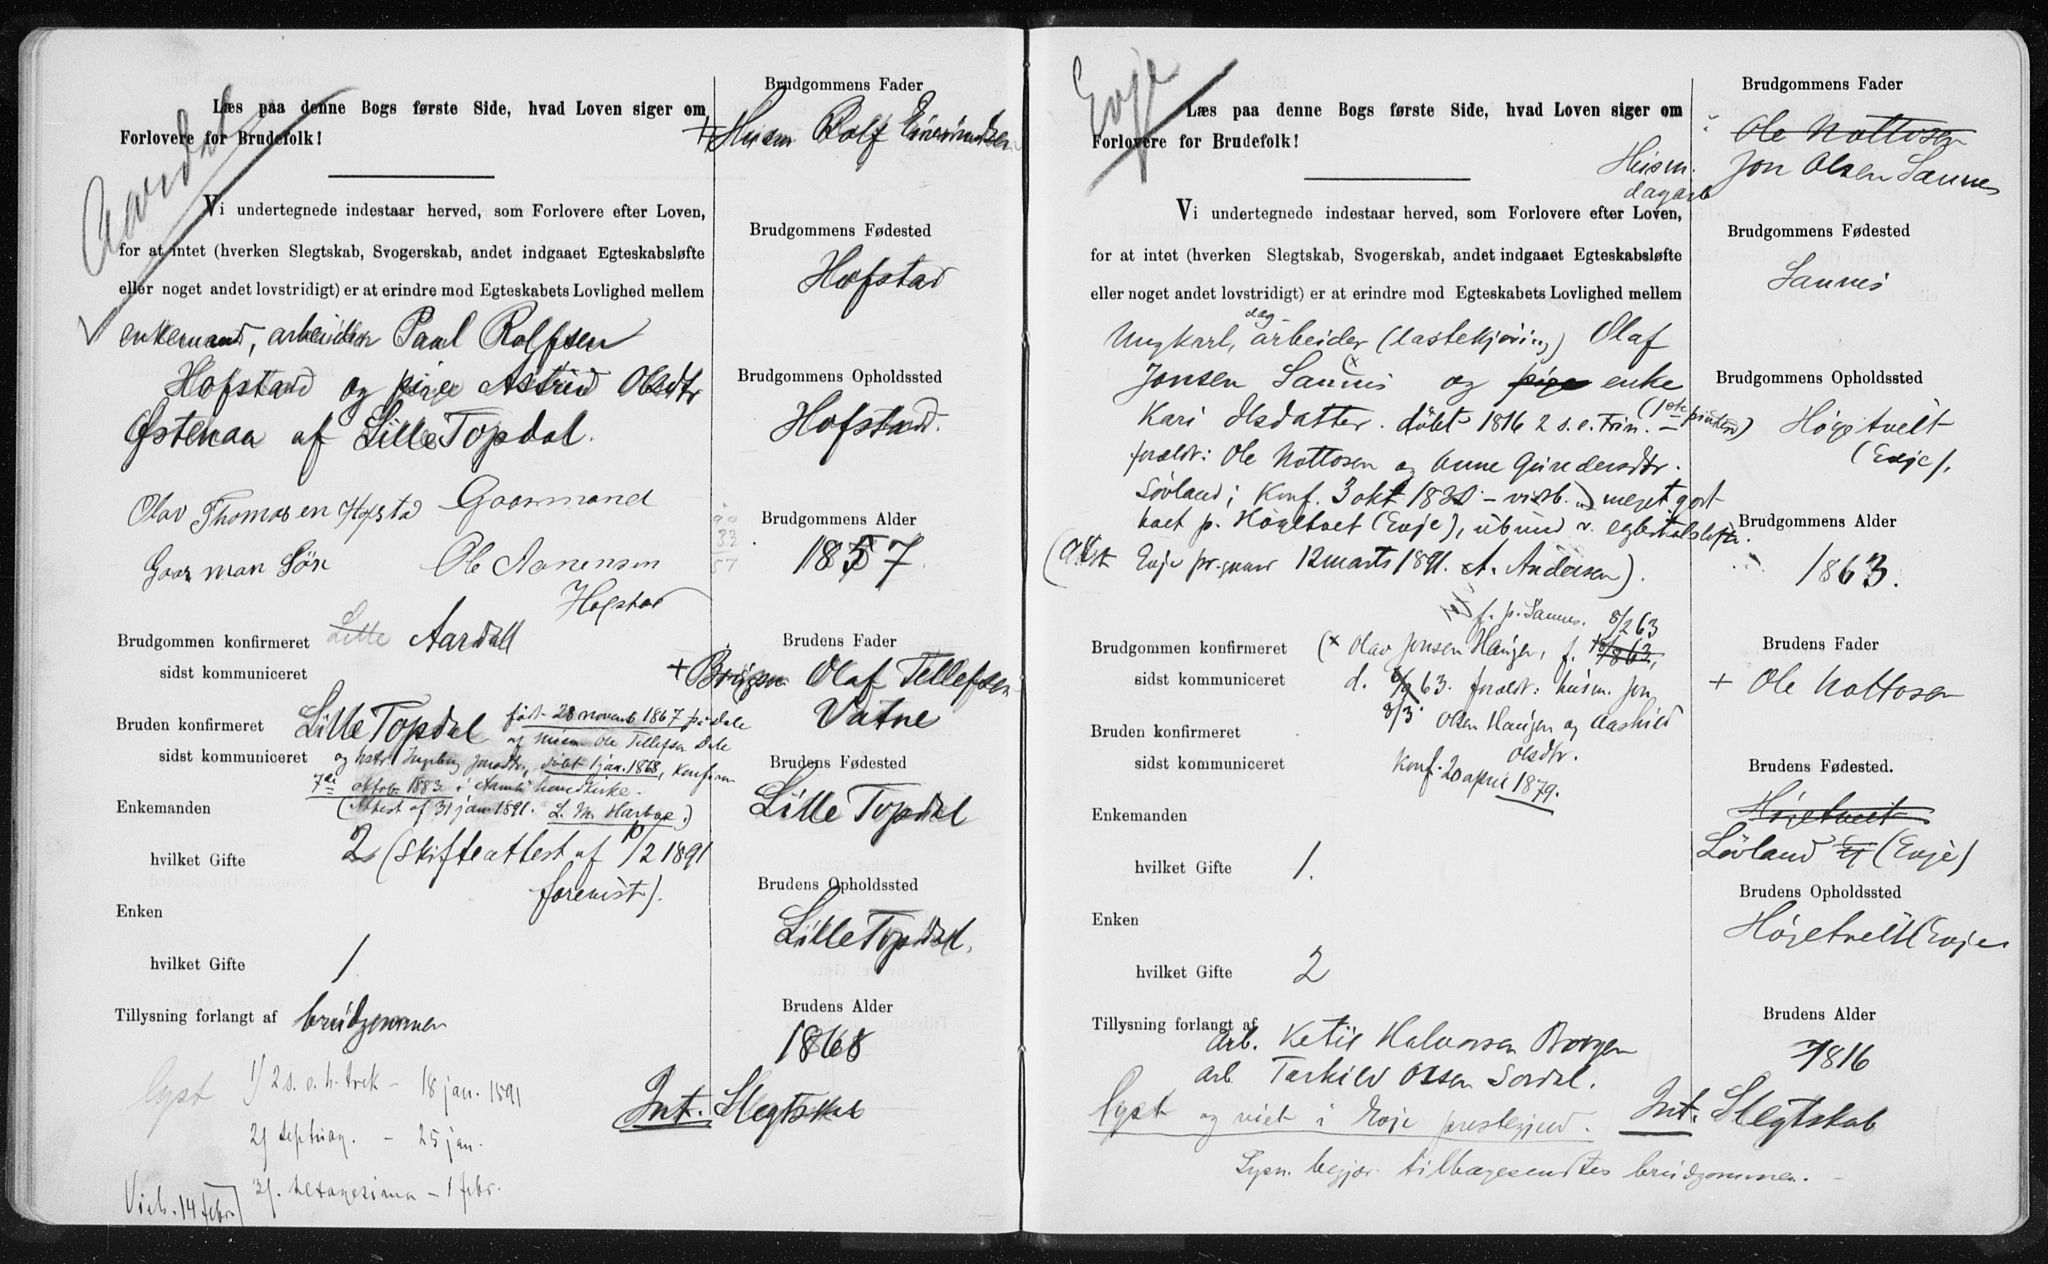 Aardal
Læs paa denne Bogs første Side, hvad Loven siger om
Forlovere for Brudefolk!
Vi undertegnede indestaar herved, som Forlovere efter Loven,
for at intet (hverken Slegtskab, Svogerskab, andet indgaaet Egteskabsløfte
eller noget andet lovstridigt) er at erindre mod Egteskabets Lovlighed mellem
enkemand, arbeider Paul Rolfsen
Hofstad og pige Astrid Olsdtr
Østenaa af Lille Topdal.
Olav Thomassen Hofstad Gaarmand
Gaarman Søn Ole Aanensen
Hofstad
Brudgommen konfirmeret Lille Aardall
sidst kommuniceret
Bruden konfirmeret Lille Topdal født 28 novemb 1867 på Dale
sidst kommuniceret af husm. Ole Tellefsen Dale
og hstr Ingeborg Jonsdtr, døbt 1 jan. 1868, konfirm
7de oktob 1883 i hovedkirke.
Enkemanden (Attest af 31 jan 1891. L. M. Harboe.)
hvilket Gifte 2 (skifteattest af 10/2 1891
forevist).
Enken
hvilket Gifte 1
Tillysning forlangt af brudgommen
lyst 1/ 2 s. e. h. trek – 18 jan. 1891
2/ septuag. – 25 jan.
3/. sexagesima – 1 febr.
Vieb. 14 febr
Brudgommens Fader
+ Husm Rolf Eivindsen
Brudgommens Fødested
Hofstad
Brudgommens Opholdssted
Hofstad.
Brudgommens Alder
90
33
57
1857
Brudens Fader
+ Olaf Tellefsen
Vatne
Brudens Fødested
Lille Topdal
Brudens Opholdssted
Lille Topdal.
Brudens Alder
1868
Int. Slegtskab
Evje
Læs paa denne Bogs første Side, hvad Loven siger om
Forlovere for Brudefolk!
Vi undertegnede indestaar herved, som Forlovere efter Loven,
for at intet (hverken Slegtskab, Svogerskab, andet indgaaet Egteskabsløfte
eller noget andet lovstridigt) er at erindre mod Egteskabets Lovlighed mellem
dag-
Ungkarl, arbeider (lastekjøring) Olaf
Jonsen Sannes (x og pige enke
Kari Olsdatter. døbt 1816 2 s. e. Trin. (1ste pintsed)
forældr: Ole Nottosen og Anne Gundersdtr.
Løvland; konf. 3 okt 1830 – meget godt
boet p. Høgetvet (Evje), ubund. v. egteskabsløfte.
(Att Evje pr.gaard 12 marts 1891. A. Andersen).
f. p. Sannes. 8/2 63
Brudgommen konfirmeret (x Olav Jonsen Haugen, f. 18/863,
sidst kommuniceret d. 8/3 63. foræld: husm. Jon
Bruden konfirmeret Olsen Haugen og Aashild
Olsdtr.
sidst kommuniceret Konf. 20 april 1879.
Enkemanden
hvilket Gifte 1.
Enken
hvilket Gifte 2
Tillysning forlangt af
Arb. Ketil Halvorsen Borgen
Arb Tarkild Olsen Sordal.
lyst og viet i Evje prestegjeld.
Lysn. begjær. tilbagesendtes brudgommen.
Brudgommens Fader
Ole Nottosen
Husm. Jon Olsen Sannes
dagarb
Brudgommens Fødested
Sannes
Brudgommens Opholdssted
Høgetveit
(Evje).
Brudgommens Alder
1863.
Brudens Fader
+ Ole Nottosen
Brudens Fødested.
Høgetveit
Løvland (Evje)
Brudens Opholdssted
Høgetveit (Evje
Brudens Alder
1816
Int. Slegtskab